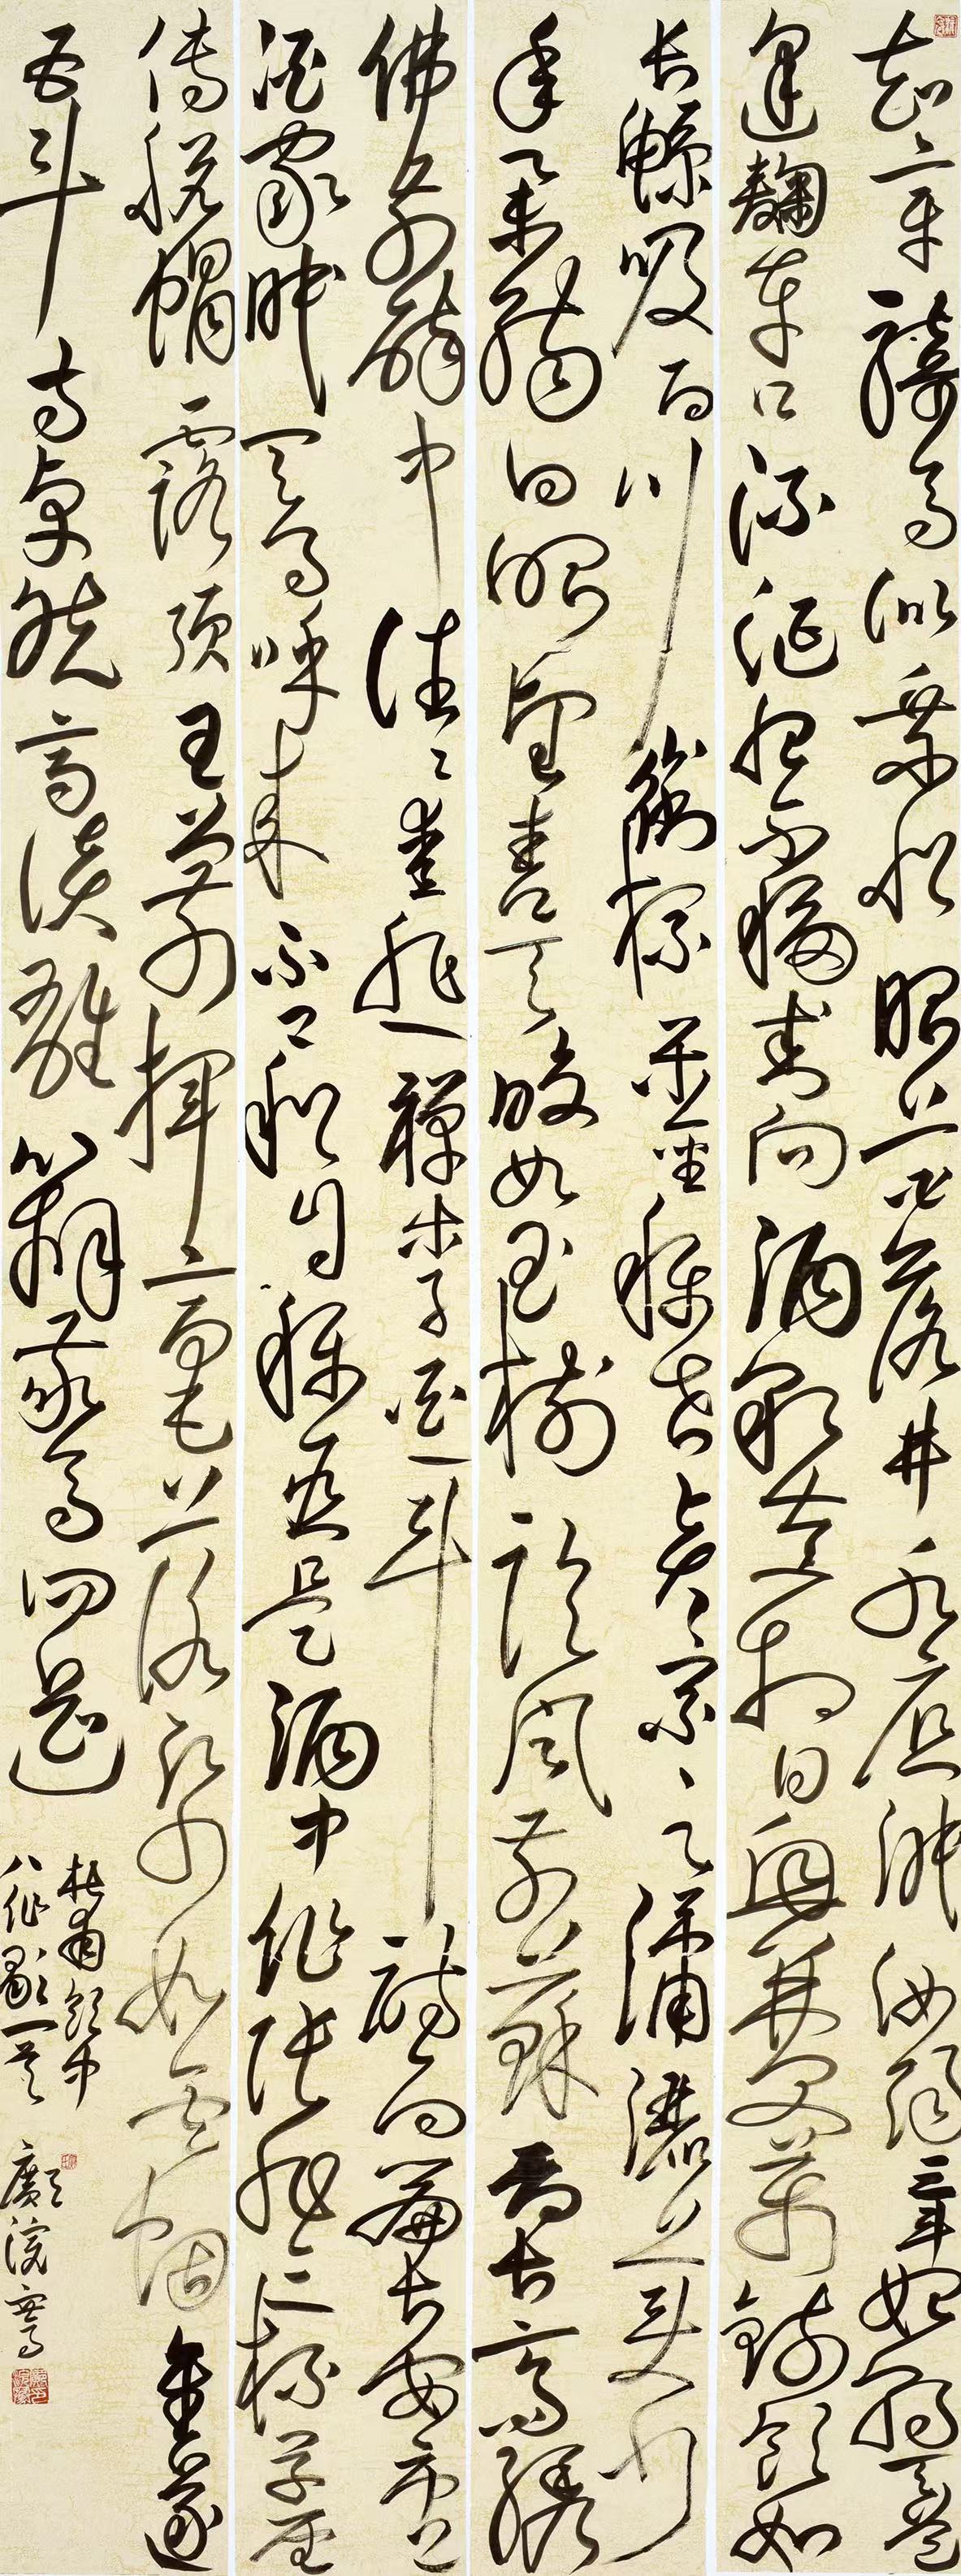 知章騎馬似乘船眼花落井水底眠汝陽三斗始朝天道
逢麴車口流涎恨不移封向酒泉左相日興費萬錢飲如
長鯨吸百川銜杯樂聖稱世賢宗之瀟灑美少
年舉觴白眼望青天皎如玉樹臨風前蘇晉長齋繡
佛前醉中往往愛逃禪李白一斗詩百篇長安市上
酒家眠天子呼來不上船自稱臣是酒中仙張旭三杯草聖
傳脫帽露頂王公前揮毫落紙如雲煙焦遂
五斗方卓然高談雄辯驚四筵
杜甫飲中
八仙歌一首